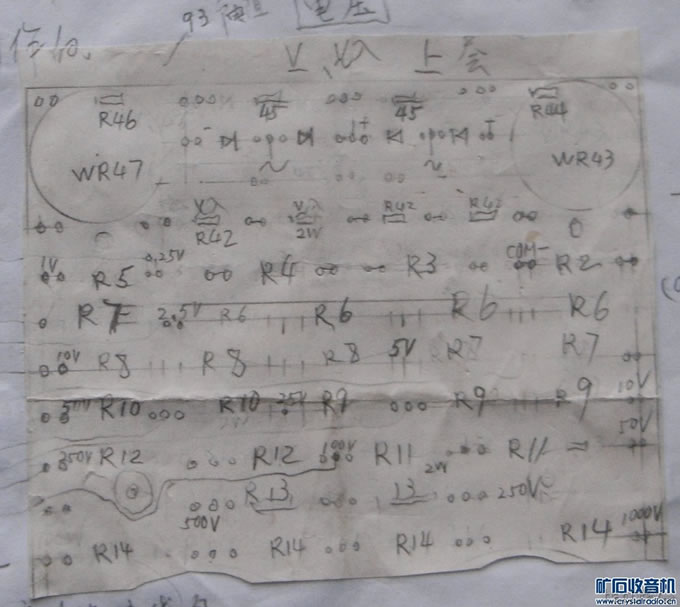 93 电压
R46 45 45 R44
WR47 ~ ~ WR43
R42 2W R42 R42
1V R5 0.25V R4 R3 COM- R2
R7 2.5V R6 R6 R6 R6
10V R8 R8 R8 5V R7 R7
R10 R10 25V R9 R9 R9 10V
50V
250V R12 R12 100V R11 2W R11 =
R13 13 250V
500V
R14 R14 R14 R14 1000V
矿石收音机
www.crystalradio.cn